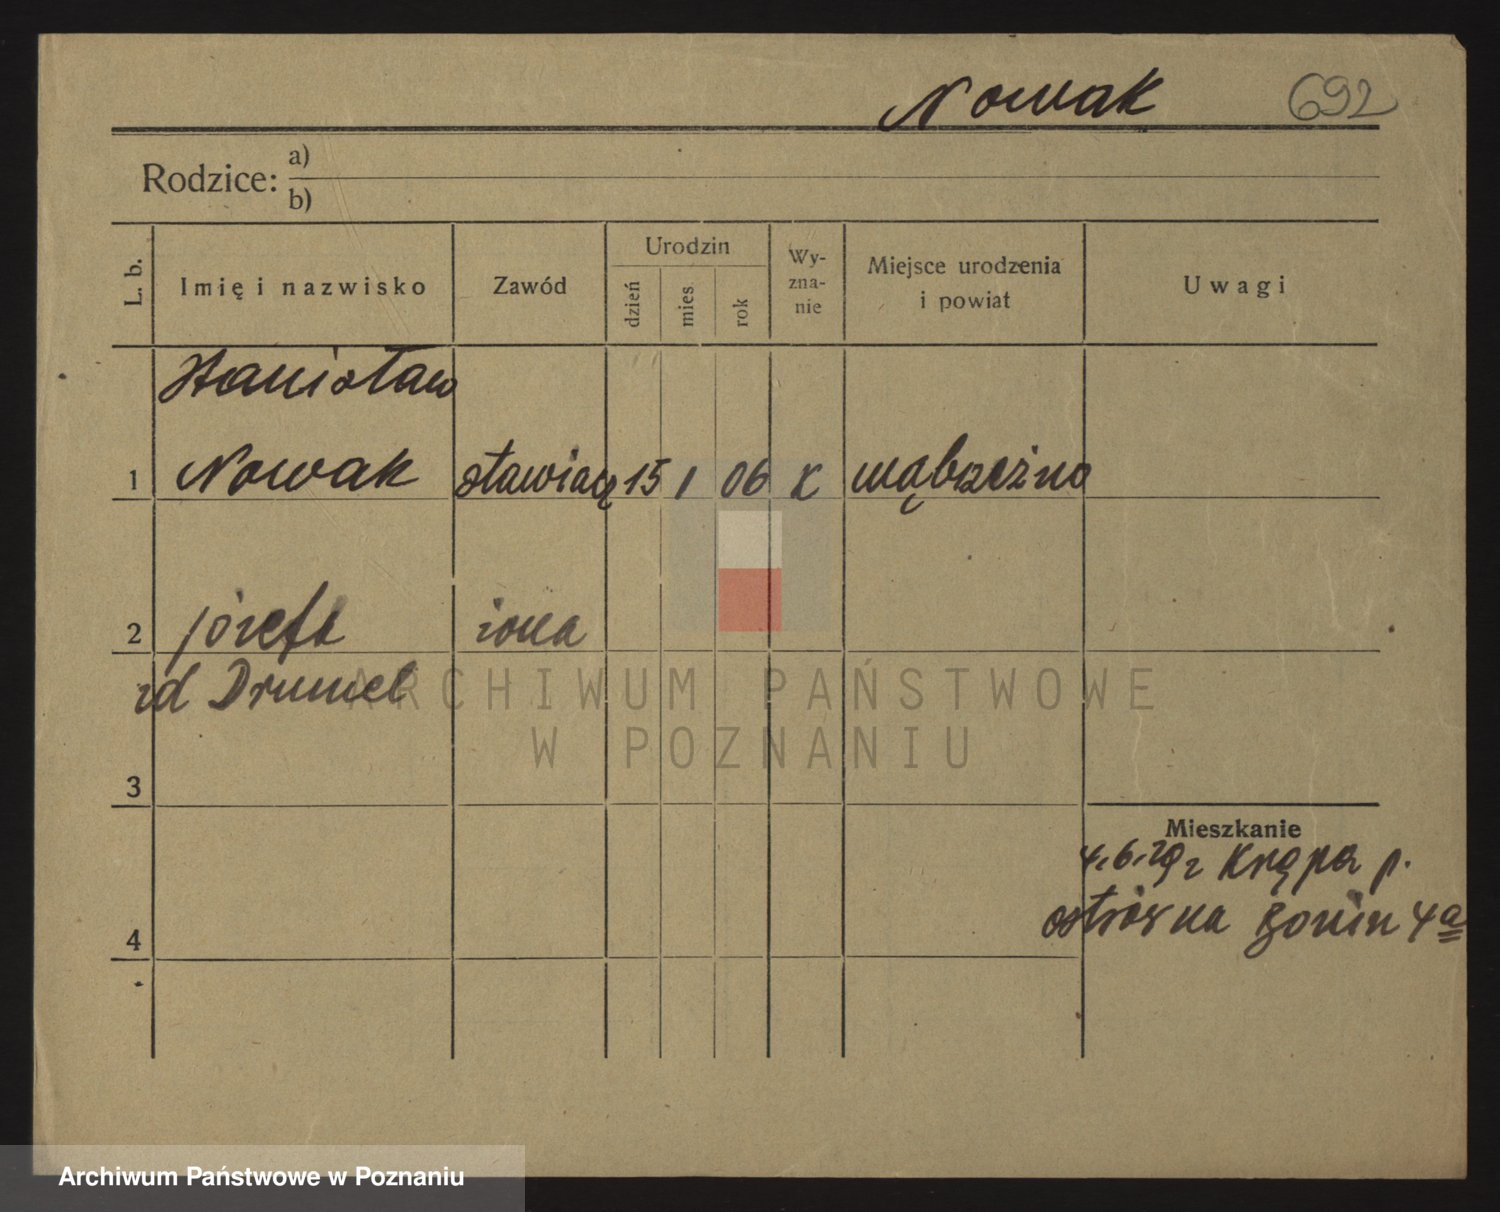 Nowak 692
Rodzice: a)
b)
L. b.
Imię i nazwisko
Zawód
Urodzin
dzień
mies
rok
Wy-
zna-
nie
Miejsce urodzenia
i powiat
Uwagi
Stanisław
1 Nowak stawiacz 15 1 06 K Wąbrzeźno
2 Józefa żona
zd Drumel
3
Mieszkanie
4.6.29 z Krąpa p.
Zonin 4a
4
ARCHIWUM PAŃSTWOWE
W POZNANIU
Archiwum Państwowe w Poznaniu